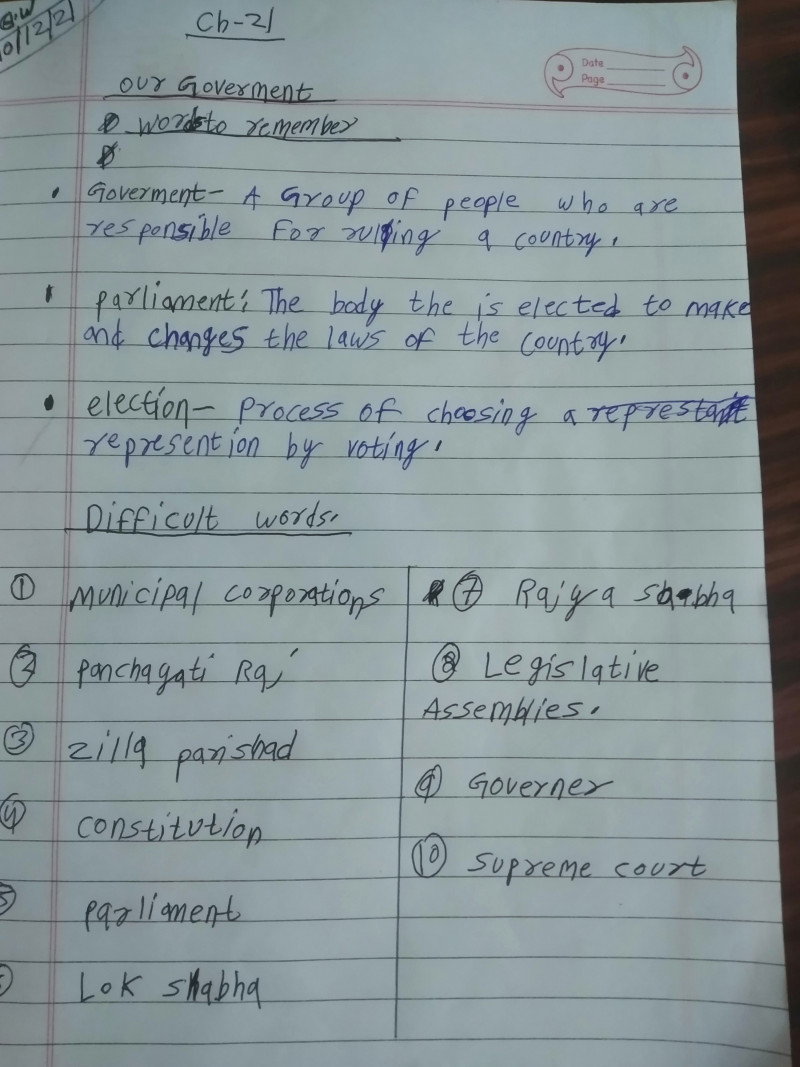 G.W
10/12/21
Ch-21
Date
Page
our Goverment
words to remember
• Goverment- A Group of people who are
responsible For ruling a country.
• parliament: The body the is elected to make
and changes the laws of the country.
• election- Process of choosing a
represention by voting.
Difficult words.
① Municipal corporations
② panchagati Raj
③ zilla parishad
④ constitution
⑤ parliment
⑥ Lok shabha
⑦ Rajya sabha
⑧ Legislative
Assemblies.
⑨ Governer
⑩ Supreme court